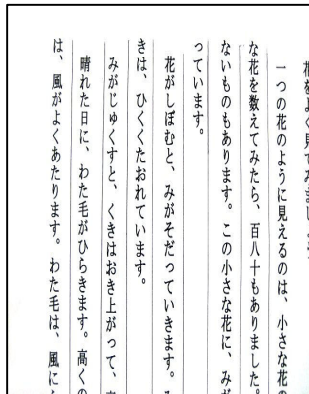 花をよく見てみましょう
一つの花のように見えるのは、小さな花の
な花を数えてみたら、百八十もありました。
ないものもあります。この小さな花に、みが
っています。
花がしぼむと、みがそだっていきます。
きは、ひくくたおれています。
みがじゅくすと、くきはおき上がって、
晴れた日に、わた毛がひらきます。高くの
は、風がよくあたります。わた毛は、風に